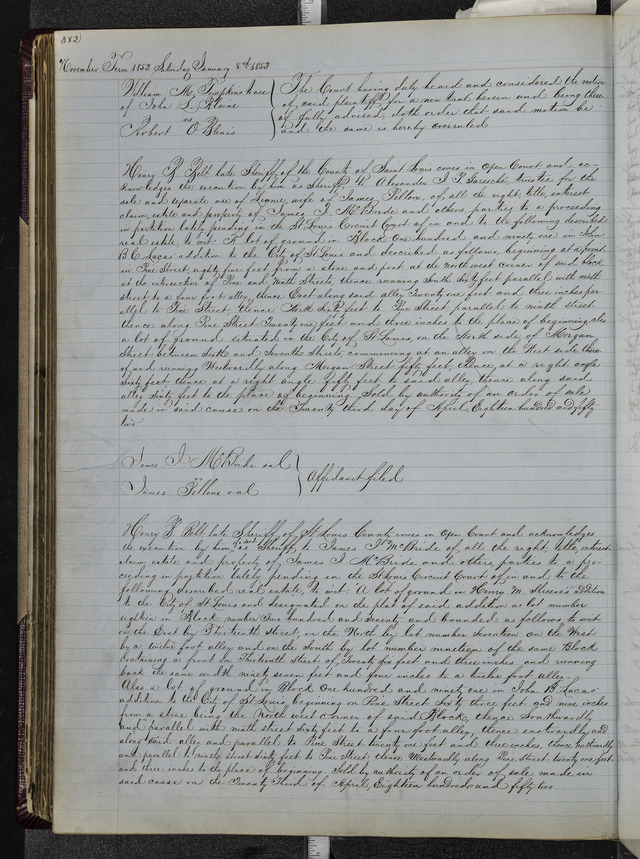 382
November Term 1852 Saturday January 8th 1853
William M. Tompkins
of John L. Blaine
vs
Robert O'Blenis
The Court having duly heard and considered the motion
of said plaintiff for a new trial herein and being there
of fully advised, doth order that said motion be
and the same is hereby overruled
Henry Belt late Sheriff of the County of Saint Louis comes in open Court and ac-
knowledges the execution by him as Sheriff to Alexander J. P. Garesché, trustee for the
sole and separate use of wife of James of, all the right, title, interest
claim, estate and property of James J. McBride and others parties to a proceeding
in partition lately pending in the St Louis Circuit Court of in and to the following described
real estate, to wit: A lot of ground in Block One hundred and ninety one in John
B. C. Lucas addition to the City of St Louis and described as follows, beginning at a point
in Pine Street eighty five feet from a stone and post at the north west corner of said block
at the intersection of Pine and Ninth Streets, thence running South Sixty feet parallel with ninth
street to a four foot alley, thence East along said alley Twenty one feet and three inches par-
allel to Pine Street, thence North Sixty feet to Pine Street parallel to ninth street
thence along Pine Street Twenty one feet and three inches to the place of beginning, also
a lot of ground situated in the City of St Louis, on the North side of Morgan
Street between Sixth and Seventh Streets, commencing at an alley on the West side there
of and running Westwardly along Morgan Street fifty feet, thence at a right angle
Sixty feet, thence at a right angle Fifty feet to said alley thence along said
alley Sixty feet to the place of beginning. Sold by authority of an order of sale
made in said cause on the Twenty third day of April Eighteen hundred and fifty
two.
James J. McBride et al
vs
James et al
Affidavit filed
Henry Belt late Sheriff of St Louis County comes in open Court and acknowledges
the execution by him as said Sheriff to James J. McBride of all the right, title, interest
claim, estate and property of James J. McBride and others parties to a pro-
ceeding in partition lately pending in the St Louis Circuit Court of in and to the
following described real estate, to wit: A lot of ground in Henry M. Shreve's addition
to the City of St Louis and designated on the plat of said addition as lot number
eighteen in Block number Two hundred and Seventy and bounded as follows, to wit
on the East by Thirteenth Street, on the North by lot number seventeen on the West
by a twelve foot alley and on the South by lot number nineteen of the same Block
containing a front on Thirteenth Street of Twenty six feet and three inches, and running
back the same width ninety seven feet and four inches to a twelve foot alley.
Also a lot of ground in Block One hundred and ninety one in John B. Lucas'
addition to the City of St Louis beginning on Pine Street Sixty three feet and nine inches
from a stone being the North west corner of said Block, thence Southwardly
and parallel with ninth street sixty feet to a four foot alley, thence eastwardly and
along said alley and parallel to Pine Street twenty one feet and three inches, thence northwardly
and parallel to ninth street sixty feet to Pine Street, thence Westwardly along Pine Street twenty one feet
and three inches to the place of beginning. Sold by authority of an order of sale made in
said cause on the Twenty Third of April, Eighteen hundred and fifty two.